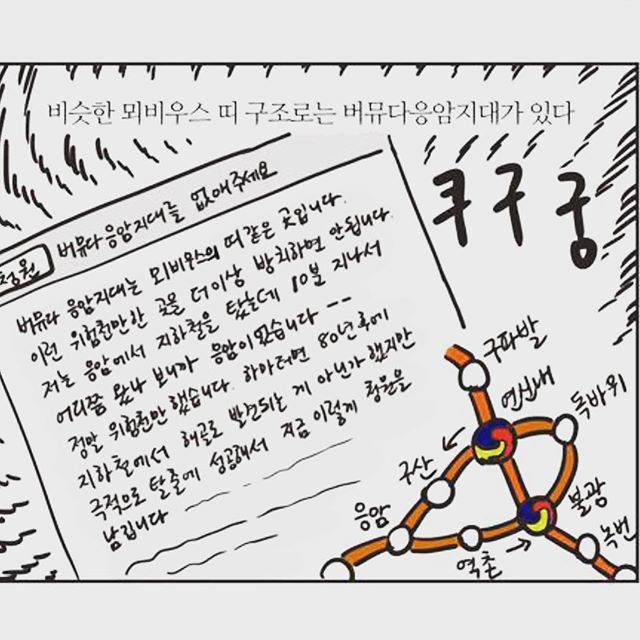 비슷한 뫼비우스 띠 구조로는 버뮤다응암지대가 있다
쿠구궁
청원 버뮤다 응암지대를 없애주세요
버뮤다 응암지대는 뫼비우스의 띠같은 곳입니다.
이런 위험천만한 곳을 더이상 방치하면 안됩니다.
저는 응암에서 지하철을 탔는데 10분 지나서
어디쯤 왔나 보니까 응암이었습니다 --
정말 위험천만 했습니다. 하마터면 80년후에
지하철에서 해골로 발견되는 게 아닌가 했지만
극적으로 탈출에 성공해서 지금 이렇게 청원을
남깁니다
구파발
연신내
독바위
구산
응암
불광
역촌
녹번